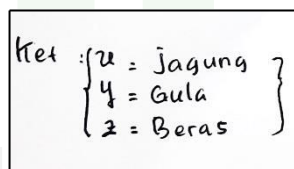 Ket : { x = jagung }
{ y = Gula }
{ z = Beras }